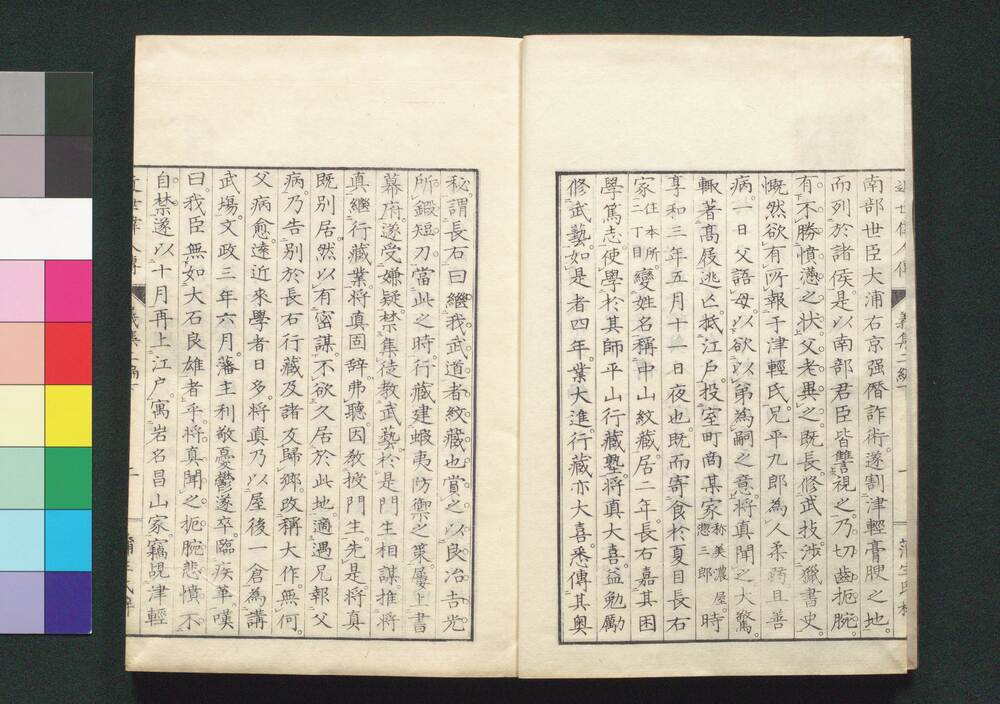 南部世臣大浦右京强僭詐術遂割津輕膏腴之地
而列於諸侯是以南部君臣皆讐視之乃切齒扼腕
有不勝憤懣之状父老異之既長修武技涉獵書史
慨然欲有所報于津輕氏兄平九郎為人柔弱且善
病一日父語母以欲以弟為嗣之意將真聞之大驚
輙著髙餞逃亾抵江戸投室町商某家称美濃屋惣三郎時
享和三年五月十一日夜也既而寄食於夏目長右
家住本所二丁目變姓名稱中山紋藏居二年長右嘉其困
學篤志使學於其師平山行藏塾將真大喜益勉勵
修武藝如是者四年業大進行藏亦大喜悉傳其奥
秘謂長右曰繼我武道者紋藏也賞之以良冶吉光
所鍛短刀當此之時行藏建蝦夷防禦之策屢上書
幕府遂受嫌疑禁集徒教武藝於是門生相謀推將
真繼行藏業將真固辞弗聽因教授門生先是將真
既別居然以有密謀不欲久居於此地適遇兄報父
病乃告別於長右行藏及諸友歸郷改稱大作無何
父病愈遠近來學者日多將真乃以屋後一倉為講
武場文政三年六月藩主利敬憂鬱遂卒臨疾革嘆
曰我臣無如大石良雄者乎將真聞之扼腕悲憤不
自禁遂以十月再上江戸寓岩名昌山家竊覘津輕